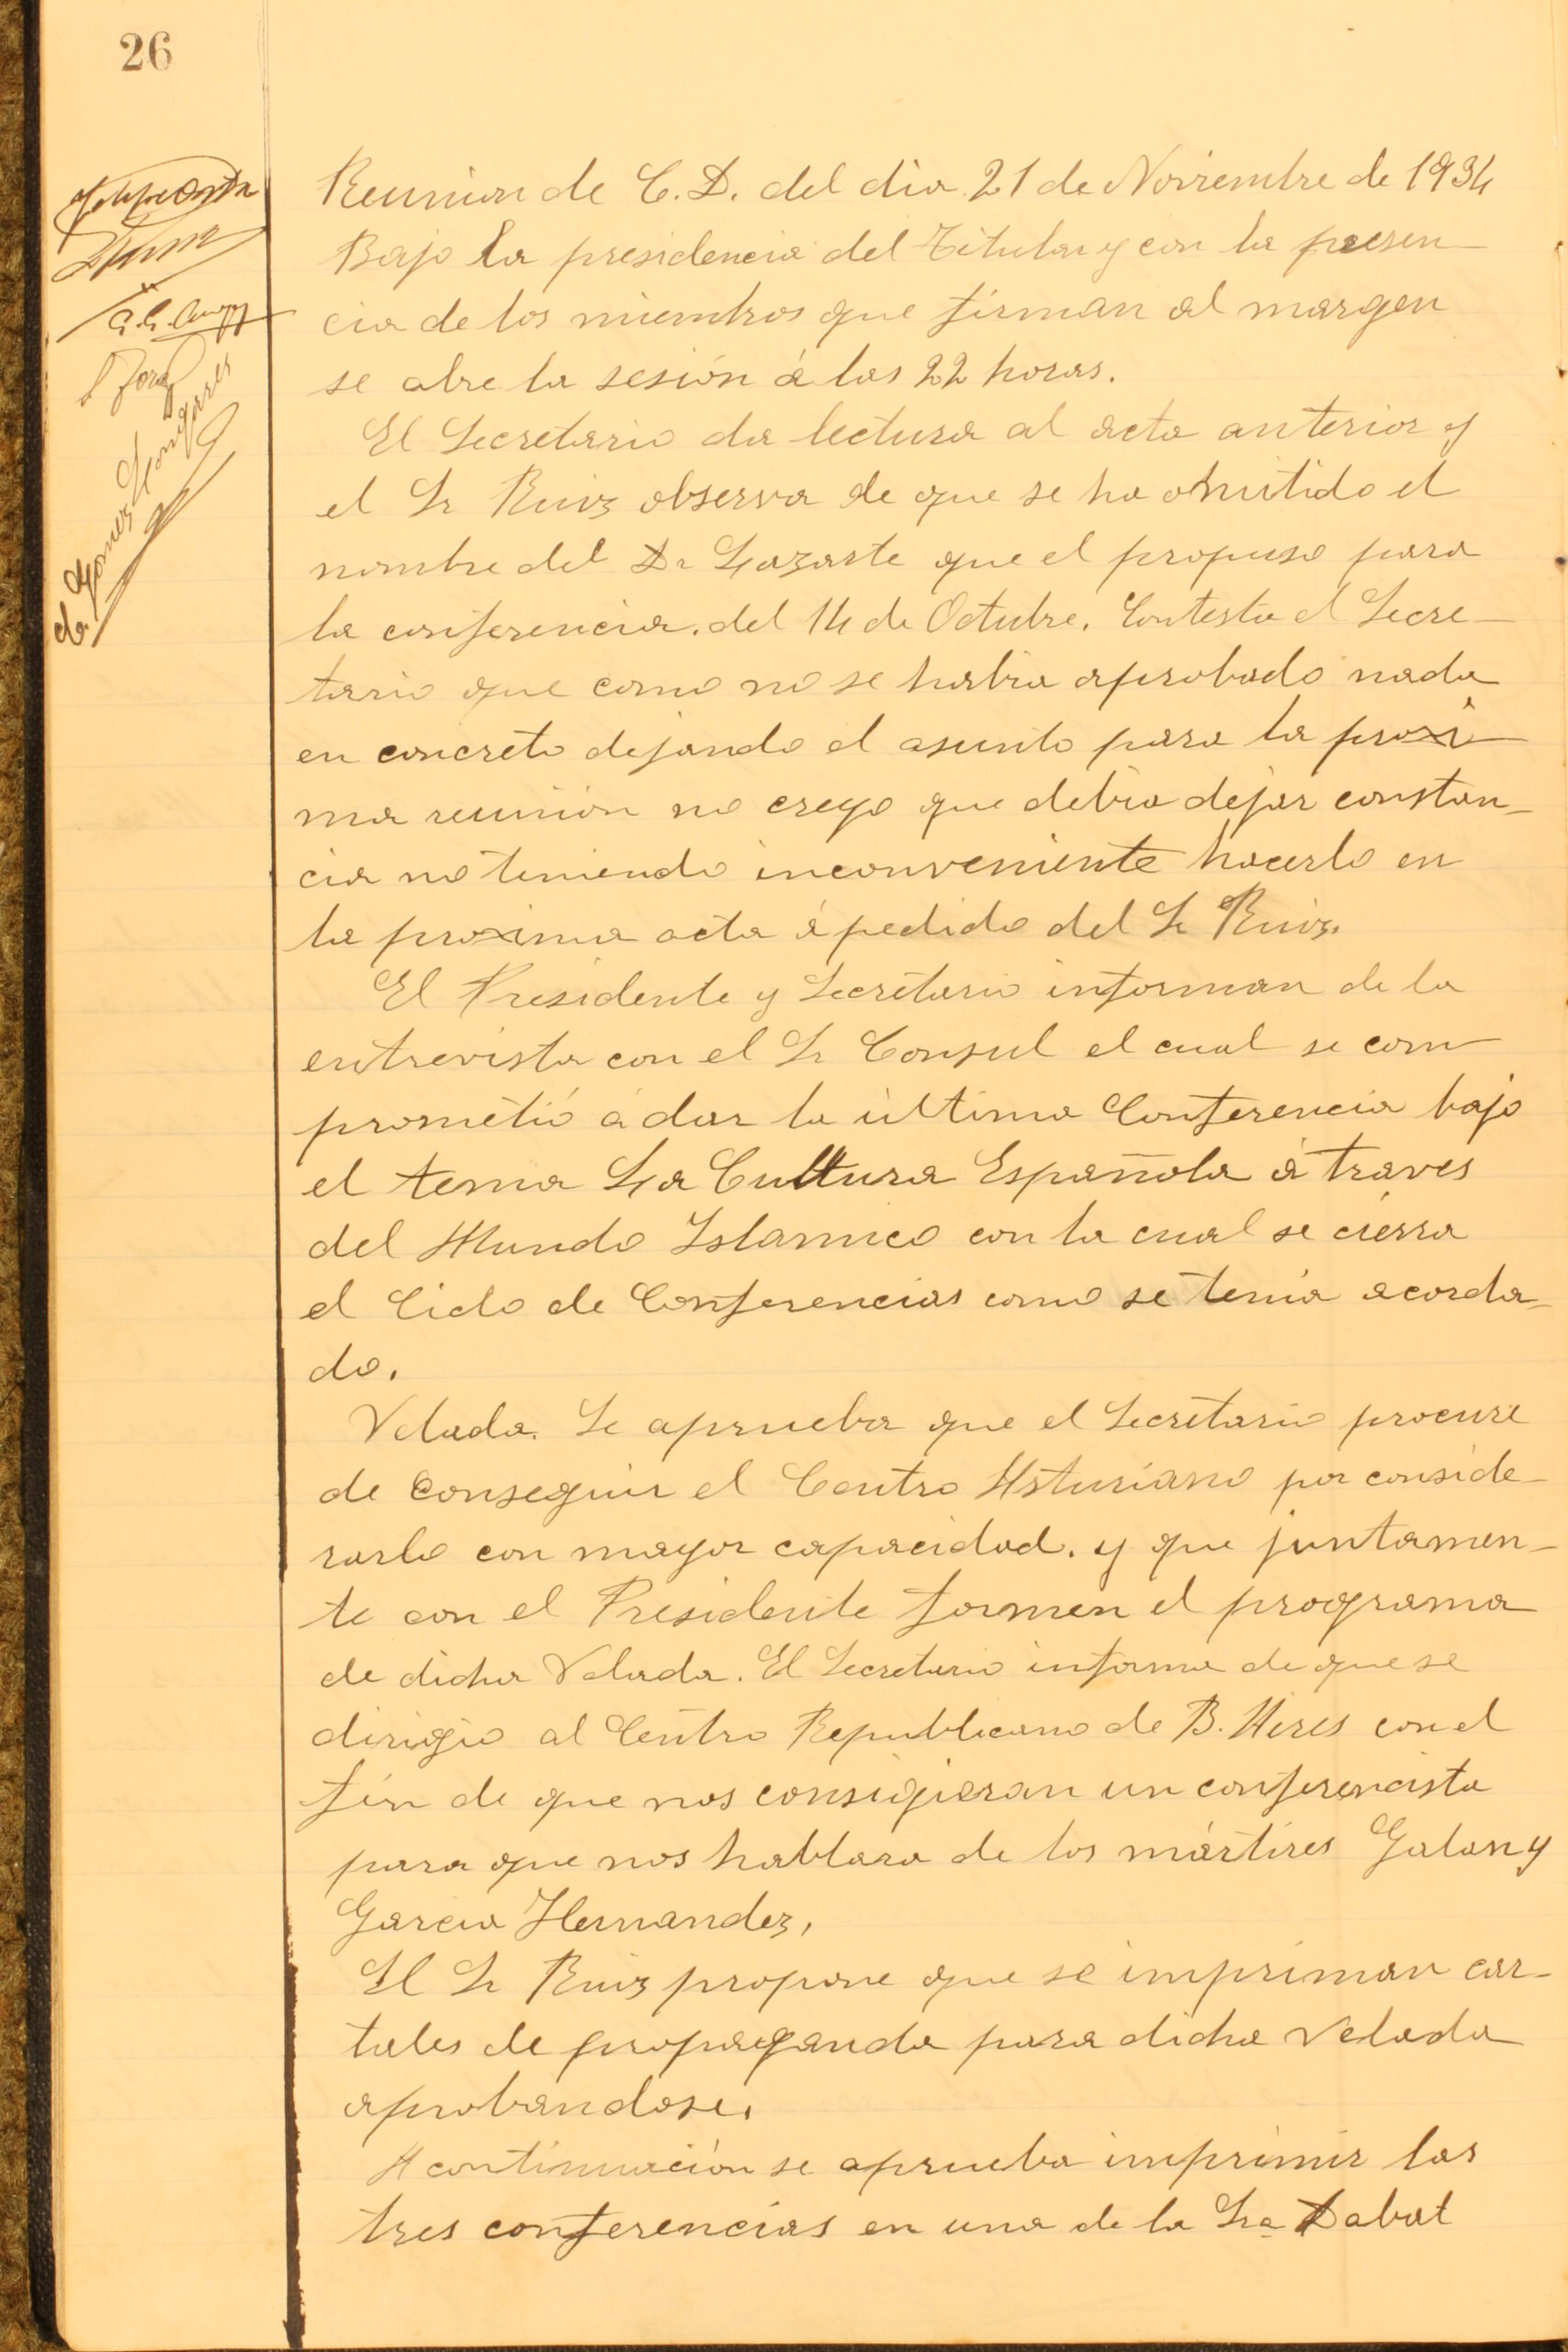 26
Reunion de C. D. del dia 21 de Noviembre de 1934
Bajo la presidencia del Titular y con la presen-
cia de los miembros que firman al margen
se abre la sesión á las 22 horas.
El Secretario da lectura al acta anterior y
el Sr Ruiz observa de que se ha omitido el
nombre del Dr Lazarte que el propuso para
la conferencia. del 14 de Octubre. Contesta el Secre-
tario que como no se habia aprobado nada
en concreto dejando el asunto para la proxi-
ma reunión no creyo que debia dejar constan-
cia no teniendo inconveniente hacerlo en
la proxima acta á pedido del Sr Ruiz.
El Presidente y Secretario informan de la
entrevista con el Sr Consul el cual se com-
prometió á dar la última Conferencia bajo
el tema La Cultura Española á traves
del Mundo Islamico con la cual se cierra
el Ciclo de Conferencias como se tenia acorda-
do.
Velada. Se aprueba que el Secretario procure
de conseguir el Centro Asturiano por conside-
rarlo con mayor capacidad. y que juntamen-
te con el Presidente formen el programa
de dicha Velada. El Secretario informa de que se
dirigio al Centro Republicano de B. Aires con el
fin de que nos consigieran un conferencista
para que nos hablara de los mártires Galan y
Garcia Hernandez,
El Sr Ruiz propone que se impriman car-
tales de propaganda para dicha Velada
aprobandose.
A continuación se aprueba imprimir las
tres conferencias en una de la Sra Dabat
Gomez Hongares